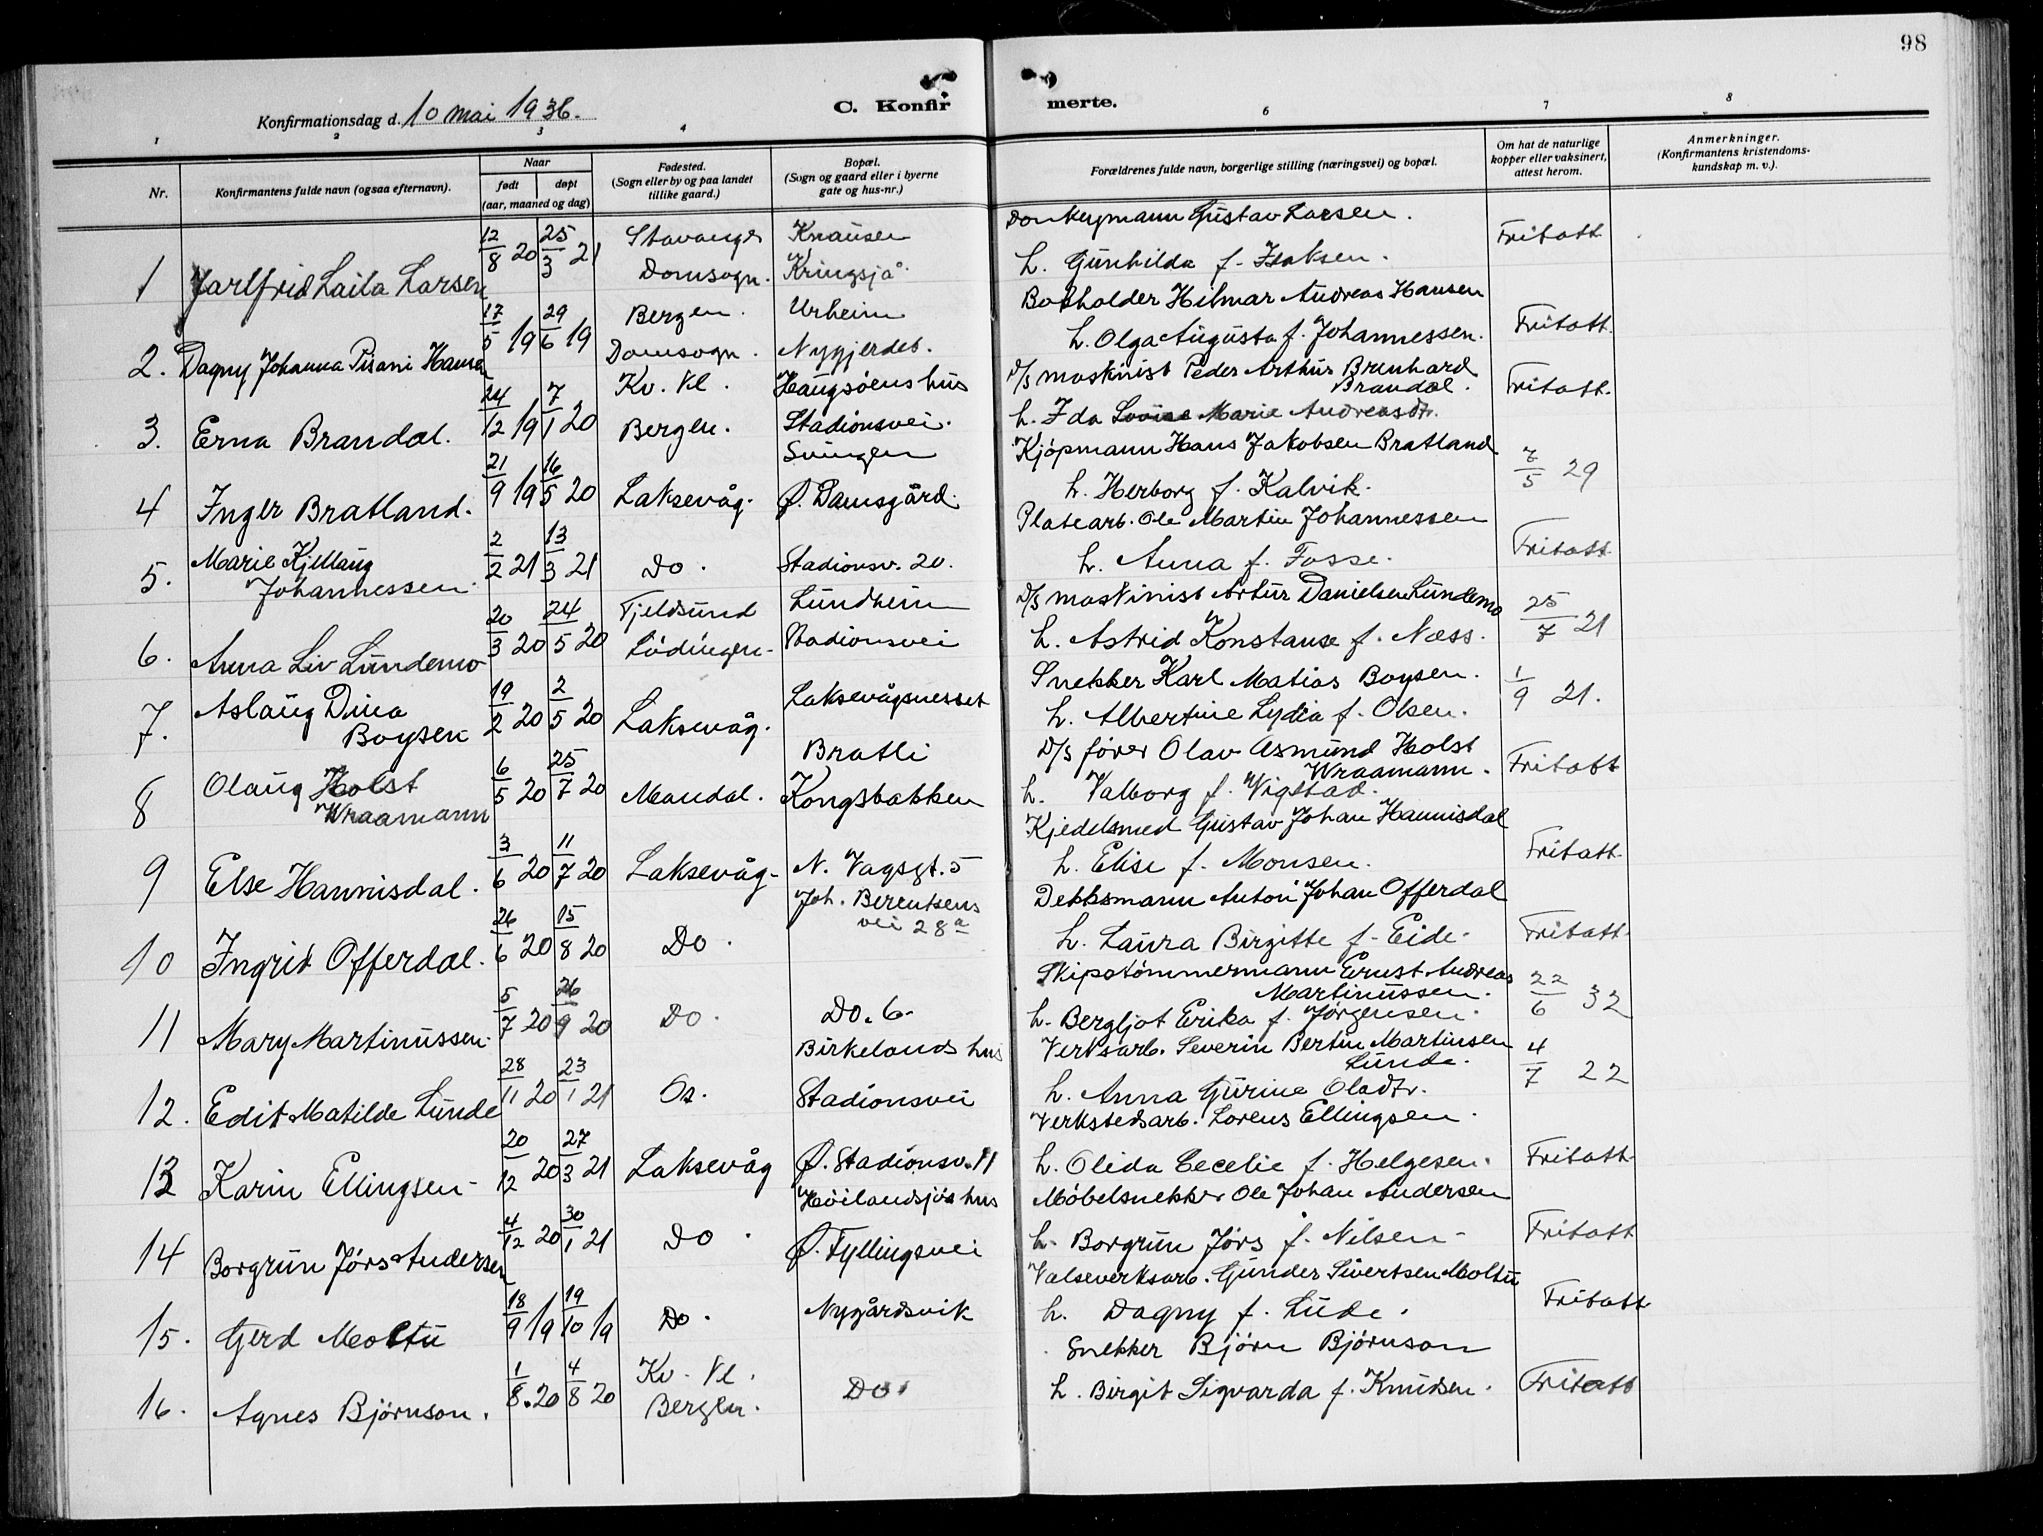 98
Konfirmationsdag d. 10 mai 1936.
C. Konfirmerte.
1 2 3 4 6 7 8
Nr.
Konfirmantens fulde navn (ogsaa efternavn).
Naar
født døpt
(aar, maaned og dag)
Fødested.
(Sogn eller by og paa landet
tillike gaard.)
Bopæl.
(Sogn og gaard eller i byerne
gate og hus-nr.)
Forældrenes fulde navn, borgerlige stilling (næringsvei) og bopæl.
Om hat de naturlige
kopper eller vaksinert,
attest herom.
Anmerkninger.
(Konfirmantens kristendoms-
kundskap m. v.).
1 Jarlfrid Laila Larsen 12/8 20 25/3 21 Stavanger Domsogn. Knausen Kringsjå.
Donkeymann Gustav Larsen.
h. Gunhilda f. Isaksen. Fritatt
2. Dagny Johanna Pisani Hansen 17/5 19 29/6 19 Bergen. Domsogn. Urheim Nygjerdet.
Bokholder Hilmar Andreas Hansen
h. Olga Augusta f. Johannessen. Fritatt.
3. Erna Brandal. 24/12 19 7/1 20 Kv. Kl. Bergen. Haugsøens hus Stadionsvei.
D/s maskinist Peder Arthur Bernhard
Brandal.
h. Ida Lovise Marie Andreasdtr. Fritatt.
4 Inger Bratland. 21/9 19 16/5 20 Laksevåg. Svingen Ø. Damsgård.
Kjøpmann Hans Jakobsen Bratland
h. Herborg f. Kalvik. 7/5 29
5. Marie Kjellaug
Johannessen. 2/2 21 13/3 21 Do. Stadionsv. 20.
Platearb. Ole Martin Johannessen
h. Anna f. Fosse. Fritatt
6. Anna Liv Lundemo 20/3 20 24/5 20 Tjeldsund Lödingen. Lundheim Stadionsvei
D/s maskinist Artur Danielsen Lundemo
h. Astrid Konstanse f. Næss. 25/7 21
7. Aslaug Dina
Boysen 19/2 20 2/5 20 Laksevåg. Laksevågsnesset
Snekker Karl Matias Boysen.
h. Albertine Lydia f. Olsen. 1/9 21.
8 Olaug Holst
Wraamann 6/5 20 25/7 20 Mandal. Bratli Kongsbakken
D/s fører Olav Asmund Holst
Wraamann.
h. Valborg f. Vigstad. Fritatt
9 Else Hannisdal. 3/6 20 11/7 20 Laksevåg. N. Vagsgt. 5
Kjedelsmed Gustav Johan Hannisdal
h. Elise f. Monsen. Fritatt.
10 Ingrid Offerdal. 26/6 20 15/8 20 Do. Joh. Berentsens
vei 28a
Dekksmann Anton Johan Offerdal
h. Laura Birgitte f. Eide. Fritatt.
11 Mary Martinussen. 5/7 20 26/9 20 Do. Do. 6.
Skipstömmermann Ernst Andreas
Martinussen.
h. Bergljot Erika f. Jørgensen. 22/6 32
12. Edit Matilde Lunde 28/11 20 23/1 21 Os. Birkelands hus Stadionsvei
Verksarb. Severin Bertin Martinsen
Lunde.
h. Anna Gurine Oladtr. 4/7 22
13 Karin Ellingsen 20/12 20 27/3 21 Laksevåg Ø. Stadionsv. 11
Verkstedsarb. Lorens Ellingsen.
h. Olida Cecelie f. Helgesen. Fritatt.
14 Borgrun Jørs Andersen 4/12 20 30/1 21 Do. Höilandsjös hus Ø. Fyllingsvei
Møbelsnekker Ole Johan Andersen
h. Borgrun Jørs f. Nilsen. Fritatt
15. Gerd Moltu 18/9 19 19/10 19 Do. Nygårdsvik
Valseverksarb. Gunder Sivertsen Moltu
h. Dagny f. Lude. Fritatt
16. Agnes Björnson. 1/8. 20 4/8 20 Kv. Kl. Bergen. Do.
Snekker Björn Björnson
h. Birgit Sigvarda f. Knudsen. Fritatt